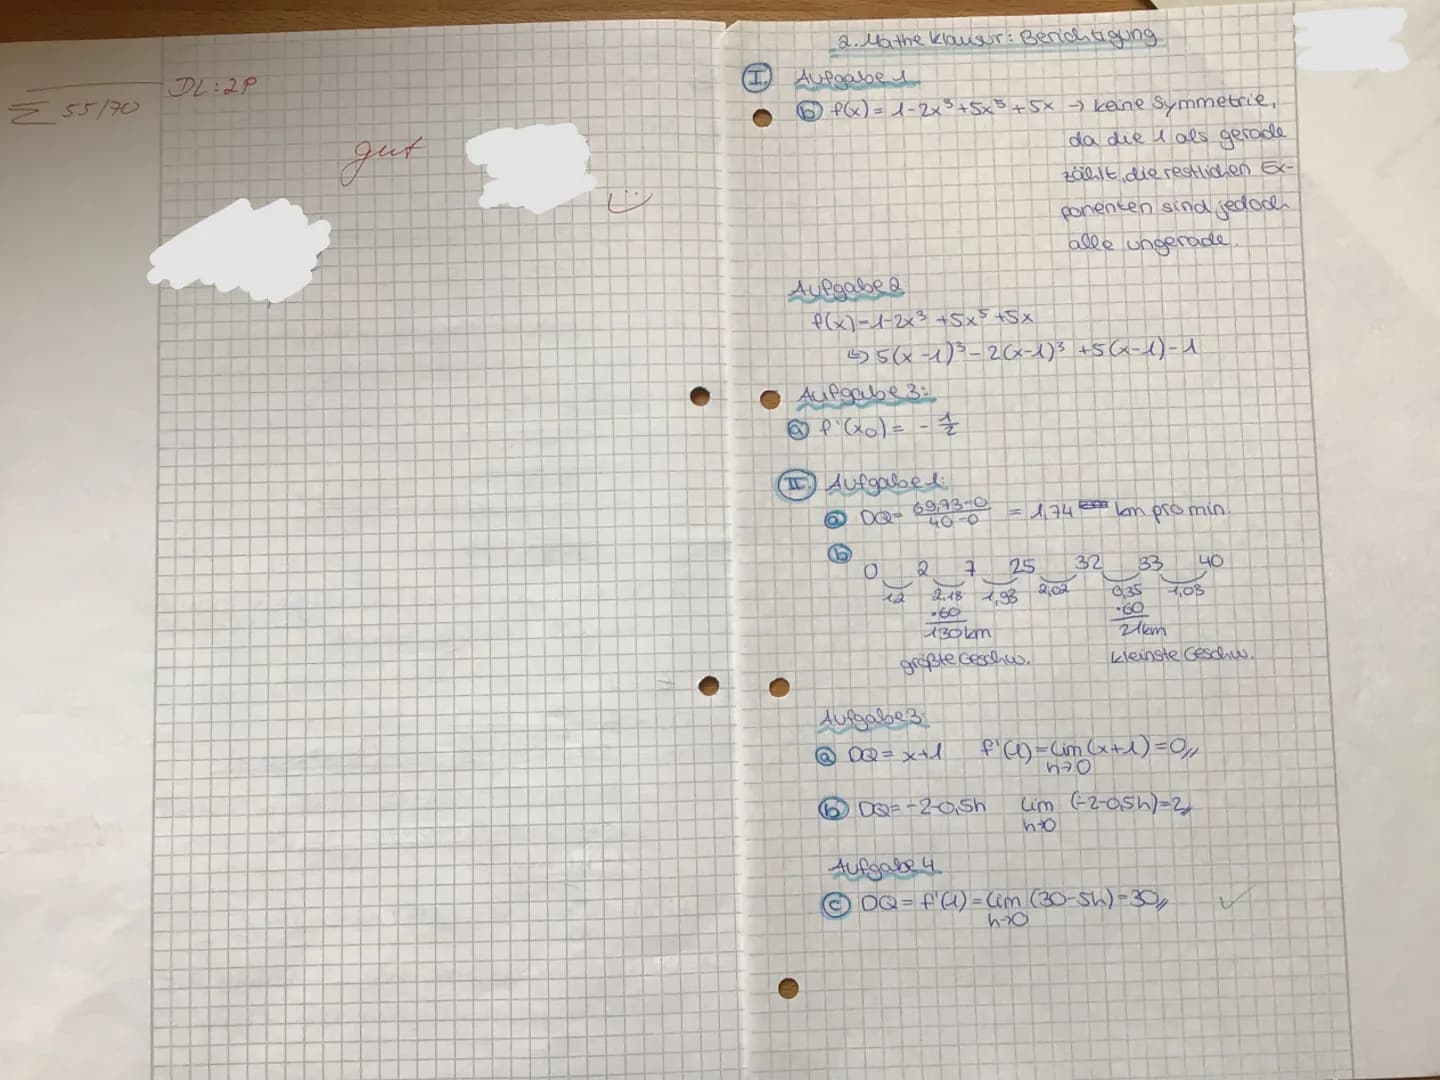 Σ 55/70
DL: 2P
gut
2. Mathe Klausur: Berichtigung
I. Aufgabe 1
b) f(x) = 1-2x³+5x⁵+5x → keine Symmetrie,
da die 1 als gerade
zählt, die restlichen Ex-
ponenten sind jedoch
alle ungerade.
Aufgabe 2
f(x)=1-2x³+5x⁵+5x
↳ 5(x-1)⁵-2(x-1)³+5(x-1)-1
Aufgabe 3:
a) f'(x₀) = -1/2
II. Aufgabe 1:
a) DQ= 69,73-0/40-0 = 1,74 km pro min.
b)
0 2 7 25 32 33 40
1,2 2,18 1,93 2,02 0,35 1,03
·60 ·60
130km 21km
größte Geschw. kleinste Geschw.
Aufgabe 3:
a) DQ = x+1 f'(1)=lim(x+1)=0
h→0
b) DQ=-2-0,5h lim (-2-0,5h)=2
h→0
Aufgabe 4
c) DQ = f'(1)=lim (30-5h)=30 ✓
h→0